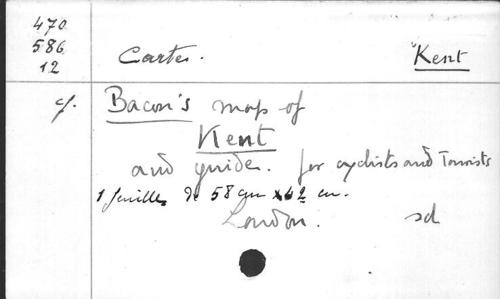 470.
586.
12
Cartes.
Kent
cf.
Bacon's map of
Kent
and guide. for cyclists and Tourists
1 feuille de 58 cm x 42 cm.
London. sd